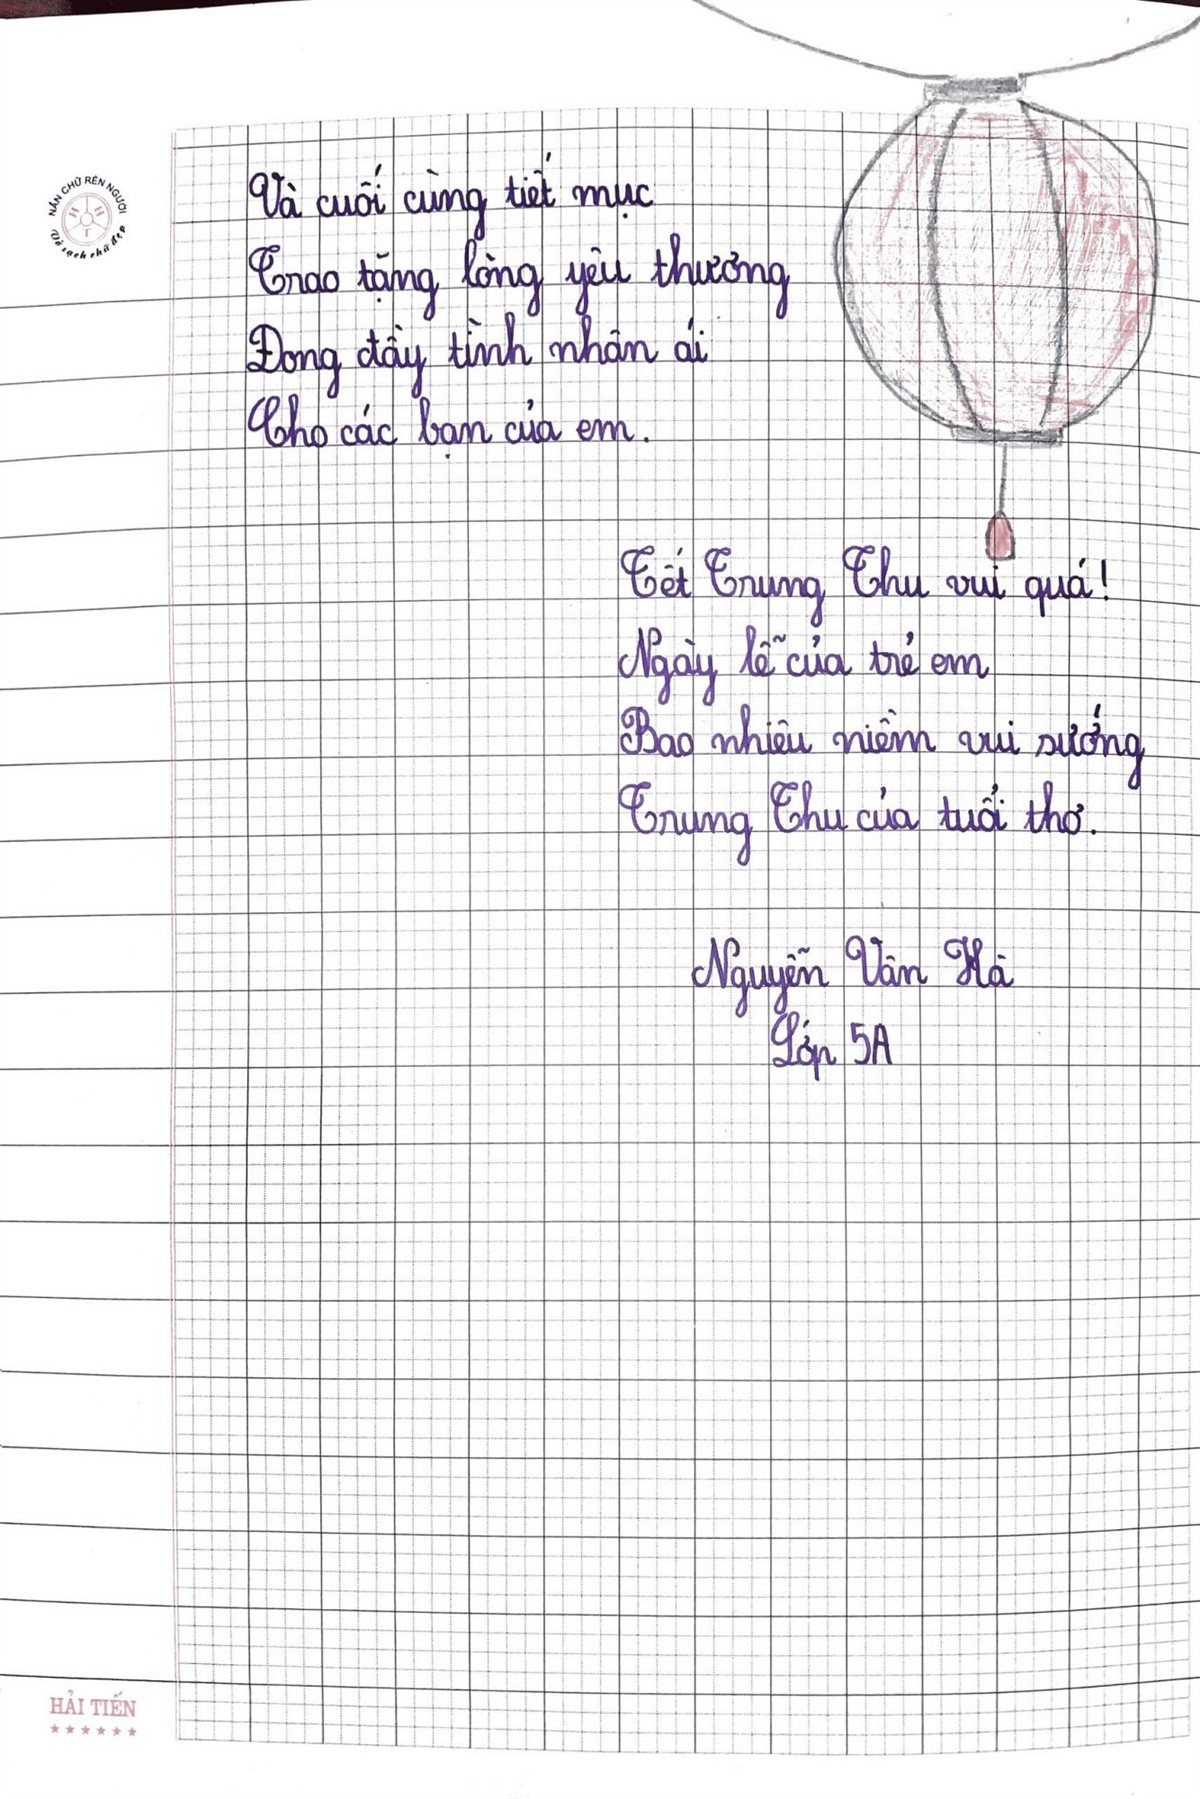 NẮN CHỮ RÈN NGƯỜI
Vở sạch chữ đẹp
Và cuối cùng tiết mục
Trao tặng lòng yêu thương
Đong đầy tình nhân ái
Cho các bạn của em.
Tết Trung Thu vui quá!
Ngày lễ của trẻ em
Bao nhiêu niềm vui sướng
Trung Thu của tuổi thơ.
Nguyễn Vân Hà
Lớp 5A
HẢI TIẾN